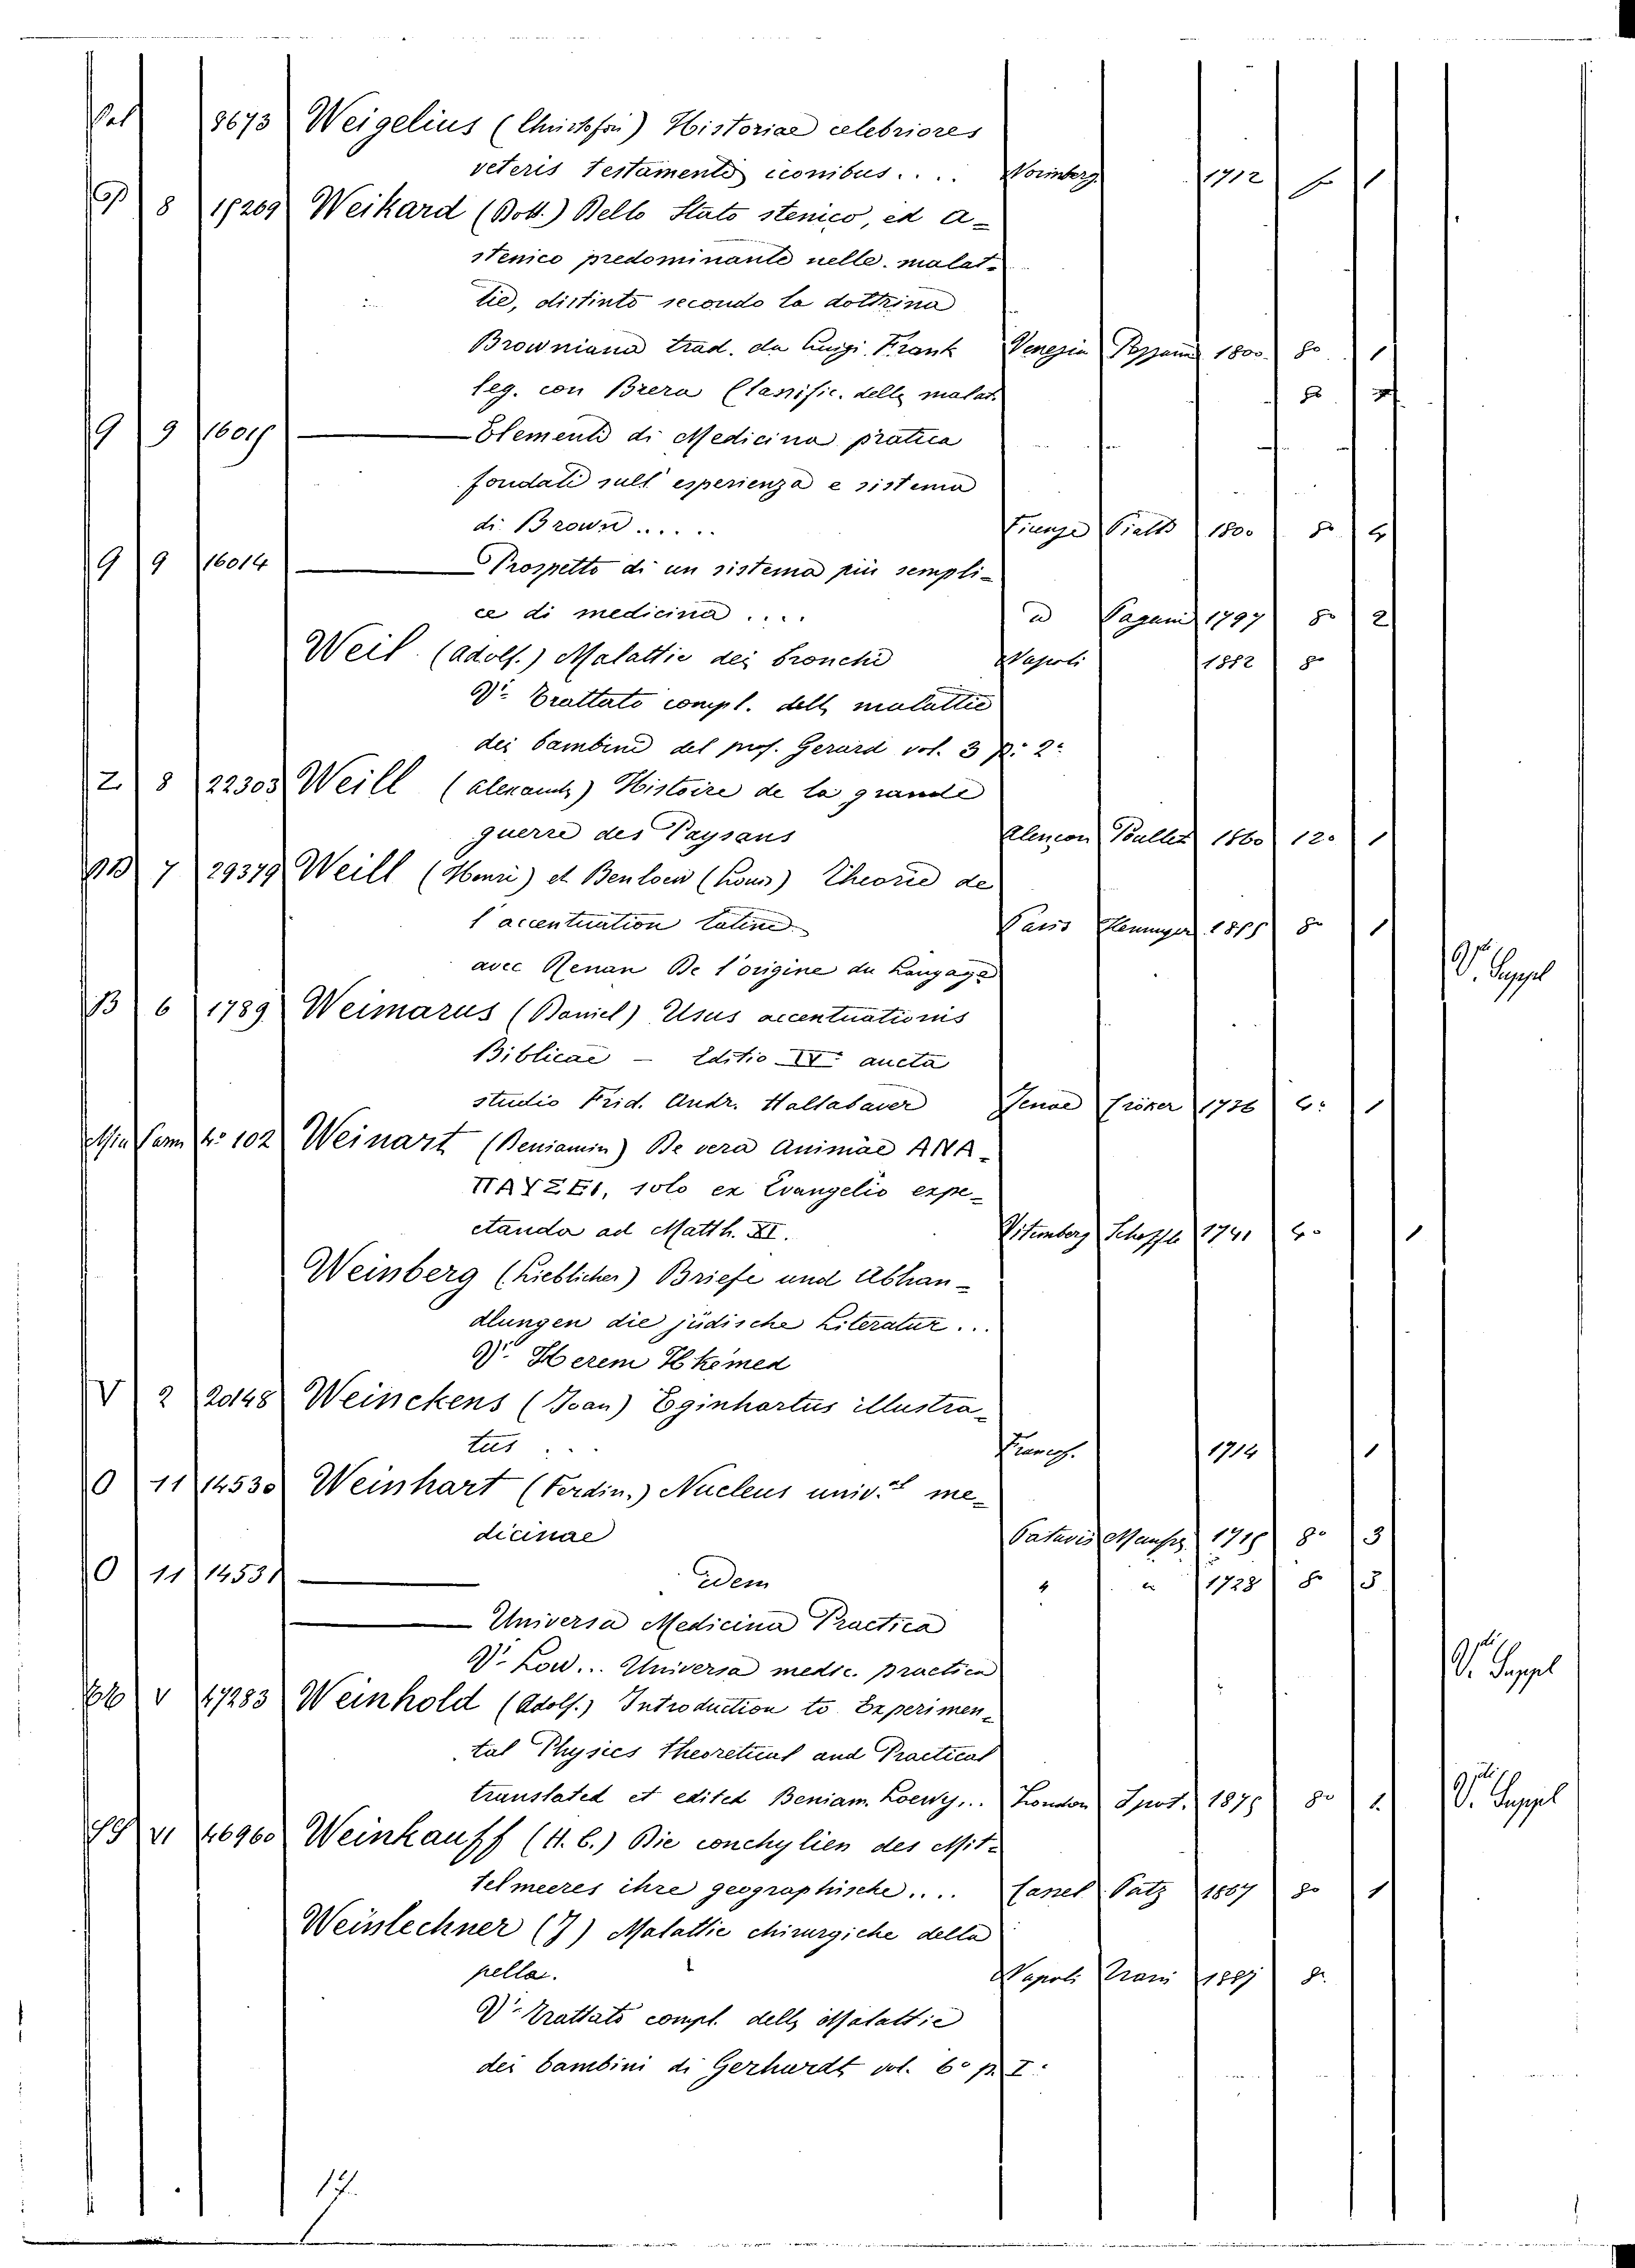 8673 Weigelius (Christofori) Historiae celebriores
veteris testamenti iconibus.... Norimberg 1712 fo 1
8 15269 Weikard (Dott.) Dello Stato stenico, ed a-
stenico predominante nelle malat-
tie, distinto secondo la dottrina
Browniana trad. da Luigi Frank Venezia 1800 8o 1
leg. con Brera Classific. delle malat. 8o
9 9 Elementi di Medicina pratica
fondati sull' esperienza e sistema
di Brown...... Firenze Piatti 1800 8o 4
9 9 16014 Prospetto di un sistema più sempli-
ce di medicina .... Pagani 1797 8o 2
Weil (Adolf.) Malattie dei bronchi Napoli 1882 8o
Vi Trattato compl. delle malattie
dei bambini del prof. Gerard vol. 3 p. 2a
Z. 8 22303 Weill (Alexandre) Histoire de la grande
guerre des Paysans Alencon Poullet 1860 12o 1
7 29379 Weill (Henri) et Benloew (Louis) Theorie de
l'accentuation latine Paris 1855 8o 1
avec Renan De l'origine du Langage Vi Suppl
B 6 1789 Weimarus (Daniel) Usus accentuationis
Biblicae - Editio IVa aucta
studio Frid. Andr. Hallabaver Jenae Cröker 1736 4o 1
Min Cam 4o 102 Weinart (Beniamin) De vera Animae ANA-
ΠΑΥΣΕΙ, solo ex Evangelio expe-
ctanda ad Matth. XI. Vitemberg Scheffle 1741 4o 1
Weinberg (Lieblicher) Briefe und Abhan-
dlungen die jüdische Literatur...
Vi Herem Hkemed
V 2 20148 Weinckens (Joan) Eginhartus illustra-
tus ... Francof. 1714 1
O 11 14530 Weinhart (Ferdin.) Nucleus univ.ae me-
dicinae Patavii Manfrè 1715 8o 3
O 11 14531 idem " " 1728 8o 3
Universa Medicina Practica
Vi Low... Universa medic. practica Vi Suppl
V 47283 Weinhold (Adolf.) Introduction to Experimen-
tal Physics theoretical and Practical
translated et edited Beniam. Loewy... London Spot. 1875 8o 1. Vi Suppl
VI 46960 Weinkauff (H. C.) Die conchylien des Mit-
telmeeres ihre geographische.... Cassel 1867 8o 1
Weinlechner (J) Malattie chirurgiche della
pelle. Napoli Trani 1887 8o
Vi Trattato compl. delle Malattie
dei bambini di Gerhardt vol. 6o p. Ia
17.